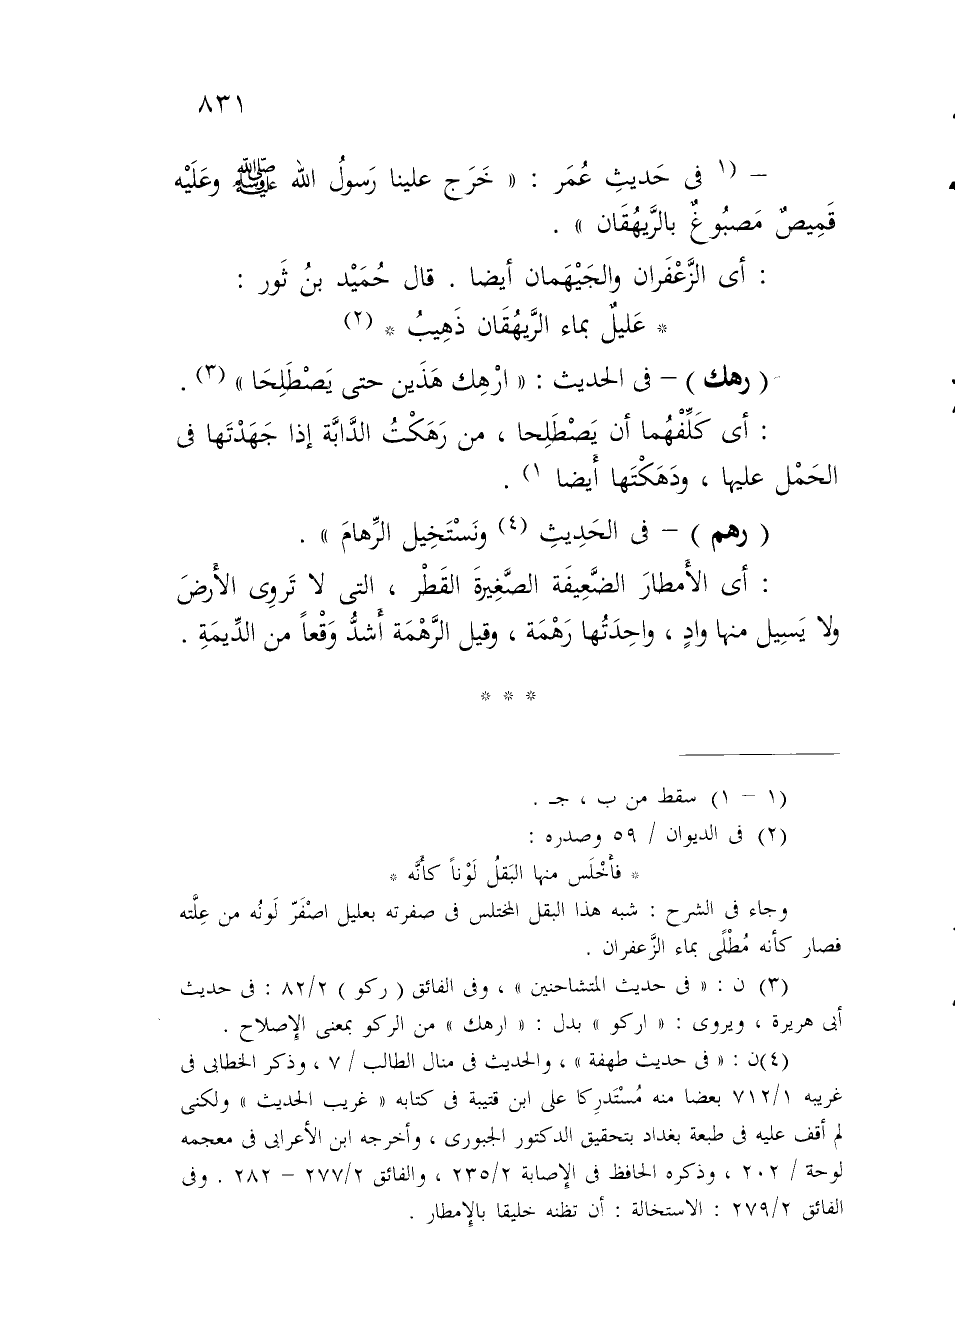 ٨٣١
– (١ فى حَديثِ عُمَر : « خَرَج علينا رَسولُ الله ﷺ وعَلَيْه
قَمِيصٌ مَصبُوغٌ بالرَّيهُقَان » .
: أى الزَّعْفَران والجَيْهَمان أيضا . قال حُمَيْد بنُ ثَور :
* عَليلٌ بماء الرَّيهُقَان ذَهِيبُ * (٢)
( رهك ) – فى الحديث : « ارْهِك هَذَين حتى يَصْطَلِحَا » (٣) .
: أى كَلِّفْهُما أن يَصْطَلِحا ، من رَهَكْتُ الدَّابَّة إذا جَهَدْتَها فى
الحَمْل عليها ، ودَهَكْتَها أَيضا ١) .
( رهم ) – فى الحَدِيثِ (٤) ونَسْتَخِيل الرِّهامَ » .
: أى الأَمطارَ الضَّعِيفَة الصَّغِيرةَ القَطْر ، التى لا تَروِى الأرضَ
ولا يَسِيل منها وادٍ ، واحِدَتُها رَهْمَة ، وقيل الرَّهْمَة أَشدُّ وَقْعاً من الدِّيمَةِ .
* * *
(١ – ١) سقط من ب ، جـ .
(٢) فى الديوان / ٥٩ وصدره :
* فأَخْلَس منها البَقلُ لَوْناً كأنَّه *
وجاء فى الشرح : شبه هذا البقل المختلس فى صفرته بعليل اصْفَرّ لَونُه من عِلَّته
فصار كأنه مُطْلًى بماء الزَّعفران .
(٣) ن : « فى حديث المتشاحنين » ، وفى الفائق ( ركو ) ٨٢/٢ : فى حديث
أبى هريرة ، ويروى : « اركو » بدل : « ارهك » من الركو بمعنى الإِصلاح .
(٤)ن : « فى حديث طهفة » ، والحديث فى منال الطالب / ٧ ، وذكر الخطابى فى
غريبه ٧١٢/١ بعضا منه مُسْتَدرِكا على ابن قتيبة فى كتابه « غريب الحديث » ولكنى
لم أقف عليه فى طبعة بغداد بتحقيق الدكتور الجبورى ، وأخرجه ابن الأعرابى فى معجمه
لوحة / ٢٠٢ ، وذكره الحافظ فى الإِصابة ٢٣٥/٢ ، والفائق ٢٧٧/٢ – ٢٨٢ . وفى
الفائق ٢٧٩/٢ : الاستخالة : أن تظنه خليقا بالإِمطار .